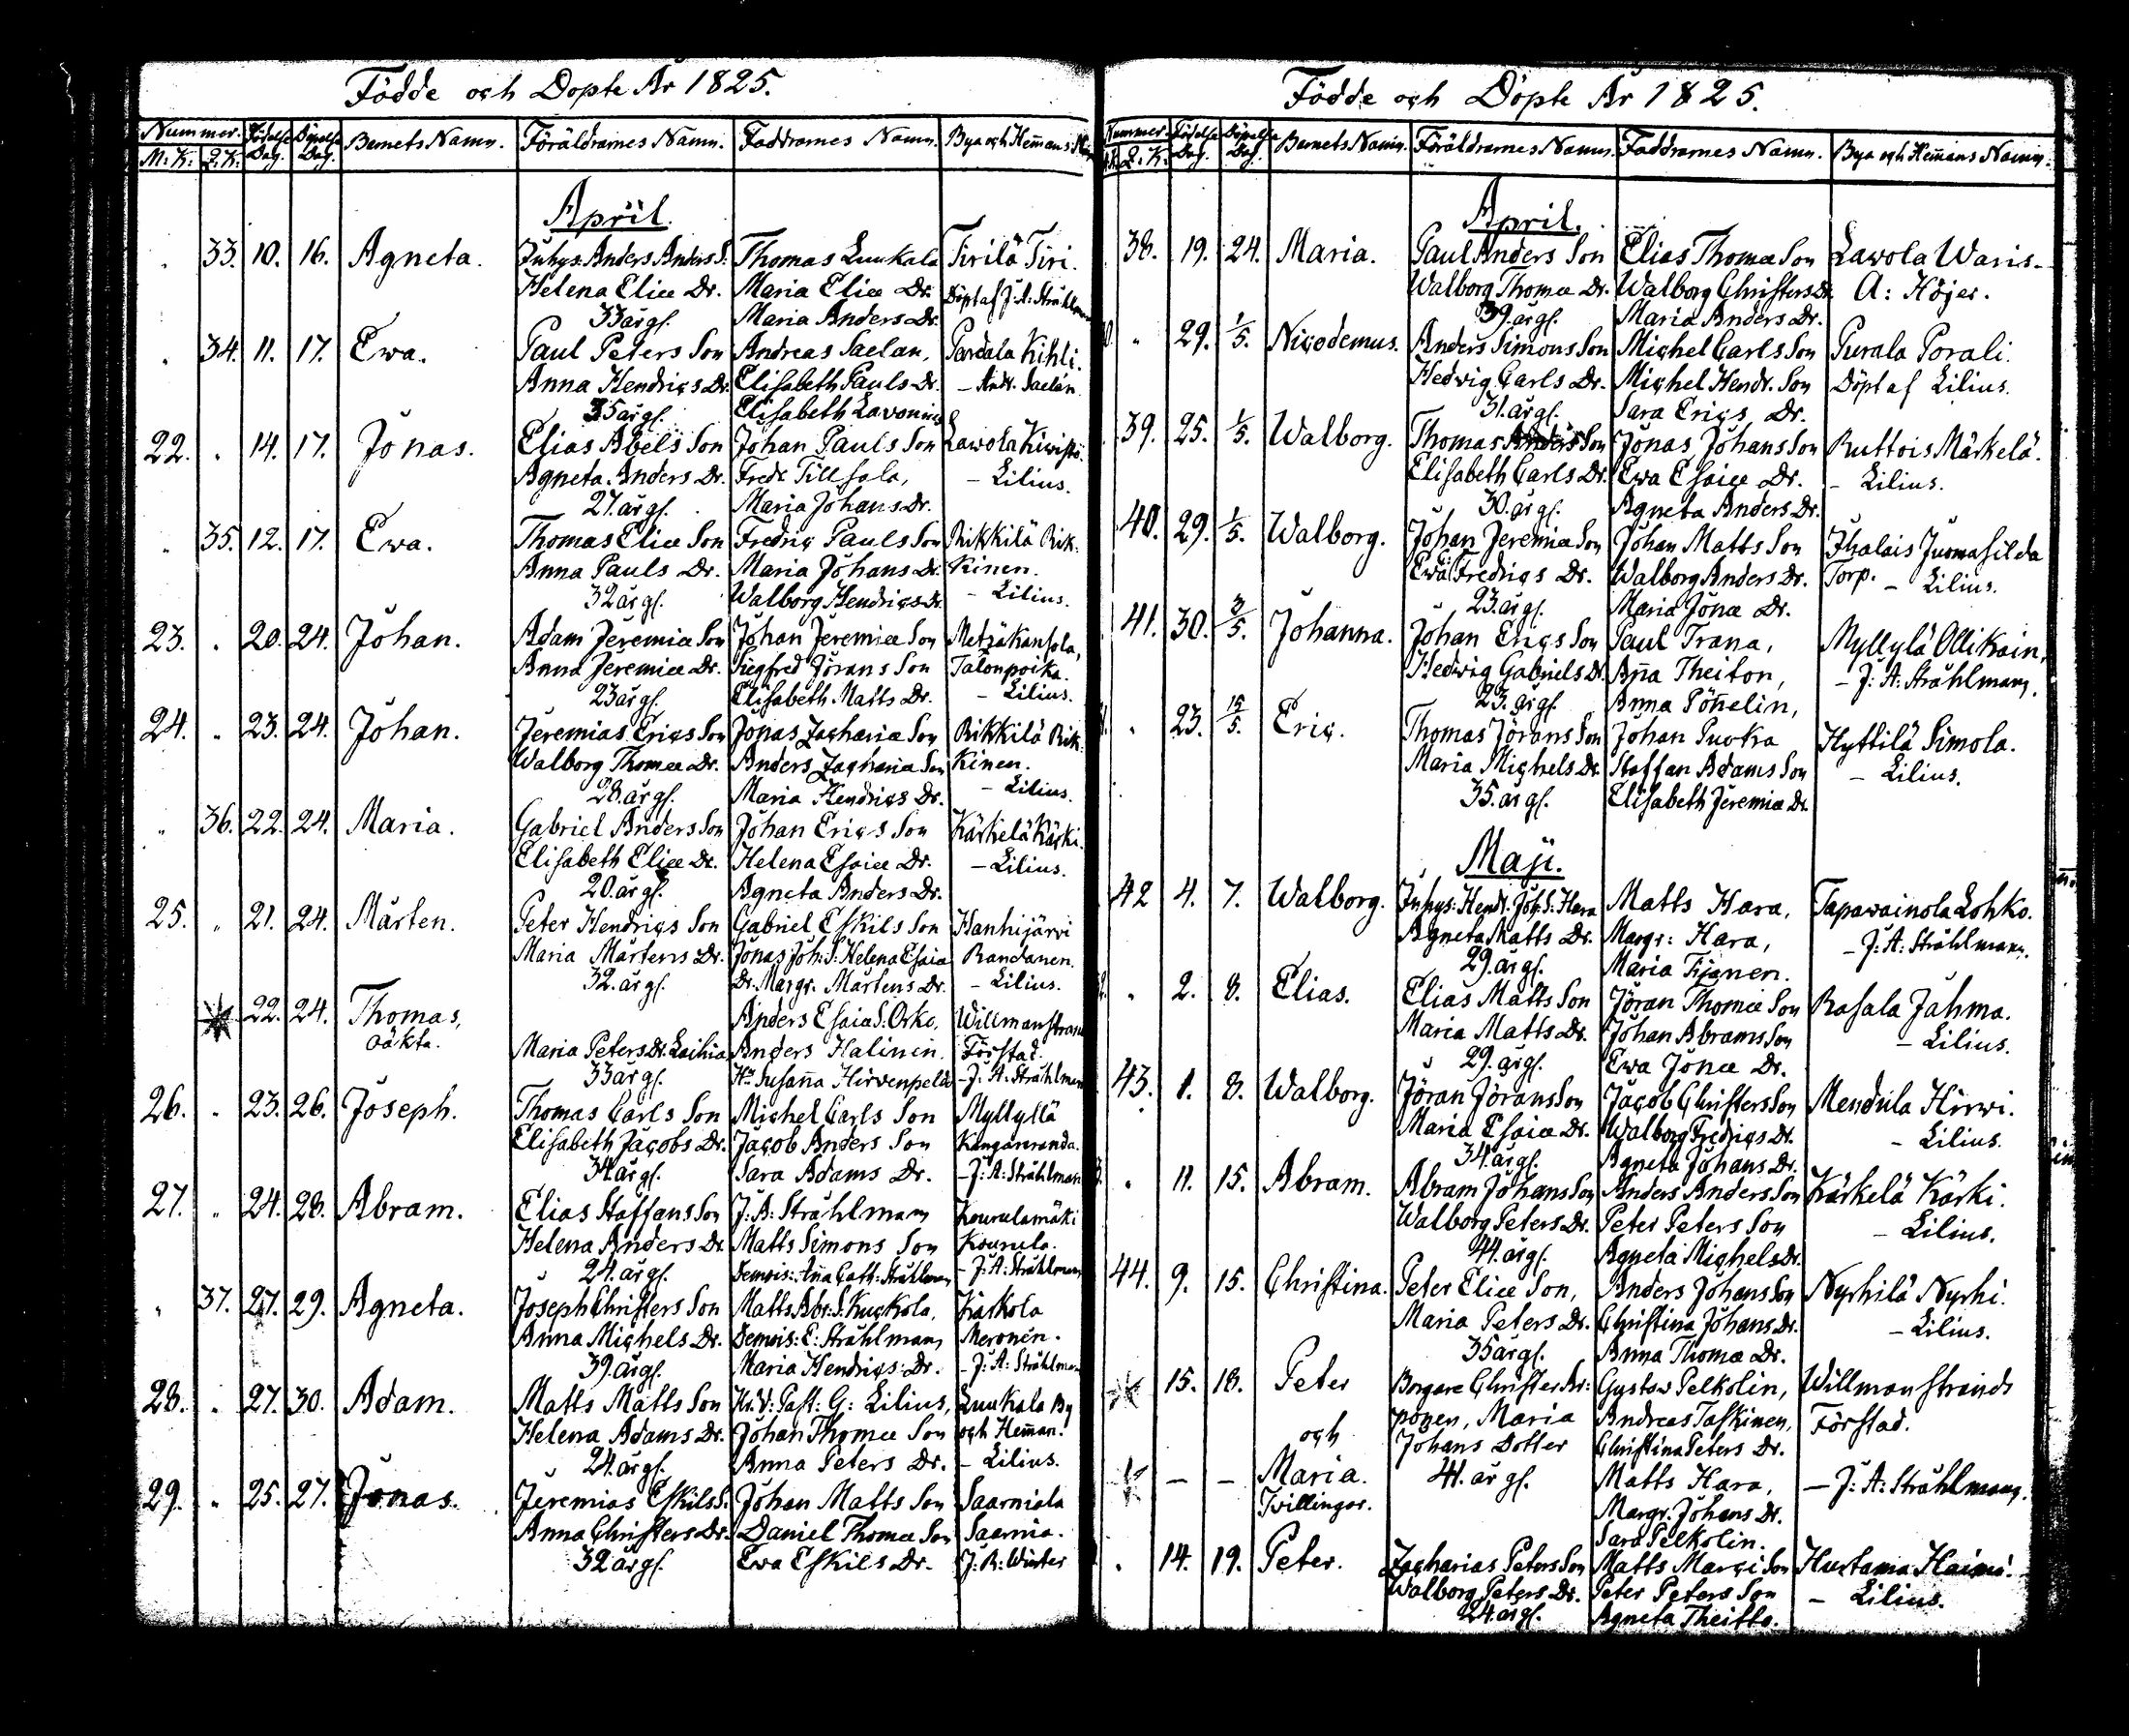 Födde och Döpte År 1825.
Nummer. Födelse Dag. Döpelse Dag. Barnets Namn. Föräldrarnes Namn. Faddrarnes Namn. Bya och Hemmans
M: K: Q: K:
April.
33. 10. 16. Agneta. Juhys. Anders Anders S: Thomas Luukala Tirilä Tiri.
Helena Eliæ Dr. Maria Eliæ Dr. Döpt af J: A: Stråhlman
33 år gl. Maria Anders Dr.
34. 11. 17. Ewa. Paul Peters Son Andreas Saelan, Pardala Kihli.
Anna Hendrics Dr. Elisabeth Pauls Dr. – Andr. Saelán.
35 år gl. Elisabeth Lavonius
22. " 14. 17. Jonas. Elias Abels Son Johan Pauls Son Lawola Kiwistö.
Agneta Anders Dr. Fredr. Tillsala, – Lilius.
27. år gl. Maria Johans Dr.
" 35. 12. 17. Ewa. Thomas Eliæ Son Fredric Pauls Son Rikkilä Rik-
Anna Pauls Dr. Maria Johans Dr. kinen.
32 år gl. Walborg Hendrics Dr. – Lilius.
23. " 20. 24. Johan. Adam Jeremiæ Son Johan Jeremiæ Son Metzäkansola,
Anna Jeremiæ Dr. Siegfred Jörans Son Talonpoika.
23 år gl. Elisabeth Matts Dr. – Lilius.
24. " 23. 24. Johan. Jeremias Erics Son Jonas Zachariæ Son Rikkilä Rik-
Walborg Thomæ Dr. Anders Zachariæ Son kinen.
28. år gl. Maria Hendrics Dr. – Lilius.
" 36. 22. 24. Maria. Gabriel Anders Son Johan Erics Son Kärkelä Kärki.
Elisabeth Eliæ Dr. Helena Esaiæ Dr. – Lilius.
20. år gl. Agneta Anders Dr.
25. " 21. 24. Mårten. Peter Hendrics Son Gabriel Eskils Son Hanhijärvi
Maria Mårtens Dr. Jonas Joh: S: Helena Esaiæ Randanen.
32. år gl. Dr. Margr. Mårtens Dr. – Lilius.
22. 24. Thomas, Anders Esaiæ S: Orko, Willmanstrand
oäkta. Maria Peters Dr. Laihia Anders Halinin. Förstad.
33 år gl. Hu Susanna Hirvenpelde – J: A: Stråhlman
26. " 23. 26. Joseph. Thomas Carls Son Michel Carls Son Myllyllä
Elisabeth Jacobs Dr. Jacob Anders Son Kangasranda.
34 år gl. Sara Adams Dr. – J: A: Stråhlman
27. " 24. 28. Abram. Elias Staffans Son J: A: Stråhlman Kourulamäki
Helena Anders Dr. Matts Simons Son Kourula.
24. år gl. Demois: Anna Cath: Stråhlman – J: A: Stråhlman
" 37. 27. 29. Agneta. Joseph Christers Son Matts Abr: S: Kuckola, Kärkola
Anna Michels Dr. Demois: E: Stråhlman Meronen.
39. år gl. Maria Hendrics Dr. – J: A: Stråhlman
28. " 27. 30. Adam. Matts Matts Son Kr. V: Past: G: Lilius, Luukala By
Helena Adams Dr. Johan Thomæ Son och Hemman.
24. år gl. Anna Peters Dr. – Lilius.
29. " 25. 27. Jonas. Jeremias Eskils S. Johan Matts Son Saarniala
Anna Christers Dr. Daniel Thomæ Son Saarnia.
32 år gl. Ewa Eskils Dr. J: R: Winter
Födde och Döpte År 1825.
Nummer. Födelse Dag. Döpelse Dag. Barnets Namn. Föräldrarnes Namn. Faddrarnes Namn. Bya och Hemmans Namn.
Q: K:
April.
38. 19. 24. Maria. Paul Anders Son Elias Thomæ Son Lawola Waris.
Walborg Thomæ Dr. Walborg Christers Dr. A: Höjer.
39. år gl. Maria Anders Dr.
" 29. 1/5. Nicodemus. Anders Simons Son Michel Carls Son Purala Porali.
Hedvig Carls Dr. Michel Hendr. Son Döpt af Lilius.
31. år gl. Sara Erics Dr.
39. 25. 1/5. Walborg. Thomas Anders Son Jonas Johans Son Ruttois Märkelä.
Elisabeth Carls Dr. Ewa Esaiæ Dr. – Lilius.
30. år gl. Agneta Anders Dr.
40. 29. 1/5. Walborg. Johan Jeremiæ Son Johan Matts Son Ihalais Juomasilda
Ewa Fredrics Dr. Walborg Anders Dr. Torp. – Lilius.
23. år gl. Maria Jonæ Dr.
41. 30. 3/5. Johanna. Johan Erics Son Paul Trana, Myllylä Ollikain,
Hedwig Gabriels Dr. Anna Theiton, – J: A: Stråhlman.
23. år gl. Anna Pönnelin,
" 23. 15/5. Eric. Thomas Jörans Son Johan Puokka Hyttilä Simola.
Maria Michels Dr. Staffan Adams Son – Lilius.
35. år gl. Elisabeth Jeremiæ Dr.
Maji.
42 4. 7. Walborg. Juhys: Hendr. Joh. S. Hara Matts Hara, Tapawainola Lohko.
Agneta Matts Dr. Margr: Hara, – J: A: Stråhlman.
29. år gl. Maria Tijanen.
" 2. 8. Elias. Elias Matts Son Jöran Thomæ Son Rasala Jahma.
Maria Matts Dr. Johan Abrams Son – Lilius.
29. år gl. Ewa Jonæ Dr.
43. 1. 8. Walborg. Jöran Jörans Son Jacob Christers Son Mendula Hirwi.
Maria Esaiæ Dr. Walborg Fredrics Dr. – Lilius.
34. år gl. Agneta Johans Dr.
" 11. 15. Abram. Abram Johans Son Anders Anders Son Kärkelä Kärki.
Walborg Peters Dr. Peter Peters Son – Lilius.
44. år gl. Agneta Michels Dr.
44. 9. 15. Christina. Peter Eliæ Son, Anders Johans Son Nyrhilä Nyrhi.
Maria Peters Dr. Christina Johans Dr. – Lilius.
35 år gl. Anna Thomæ Dr.
15. 18. Peter Borgare Christer Ar: Gustav Pelkolin, Willmanstrands
och ponen, Maria Andreas Taskinen, Förstad.
Johans Dotter Christina Peters Dr.
– – Maria. 41. år gl. Matts Hara, – J: A: Stråhlman.
Tvillingar. Margr. Johans Dr.
Sara Pelkolin.
" 14. 19. Peter. Zacharias Peters Son Matts Marci Son Hurtama Haimi.
Walborg Peters Dr. Peter Peters Son – Lilius.
24. år gl. Agneta Theitto.